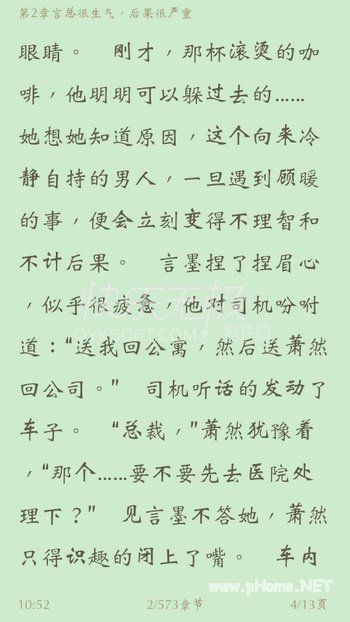 第2章言总很生气，后果很严重
眼睛。 刚才，那杯滚烫的咖
啡，他明明可以躲过去的……
她想她知道原因，这个向来冷
静自持的男人，一旦遇到顾暖
的事，便会立刻变得不理智和
不计后果。 言墨捏了捏眉心
，似乎很疲惫，他对司机吩咐
道：“送我回公寓，然后送萧然
回公司。” 司机听话的发动了
车子。 “总裁，”萧然犹豫着
，“那个……要不要先去医院处
理下？” 见言墨不答她，萧然
只得识趣的闭上了嘴。 车内
www.pHome.NET
10:52 2/573章节 4/13页